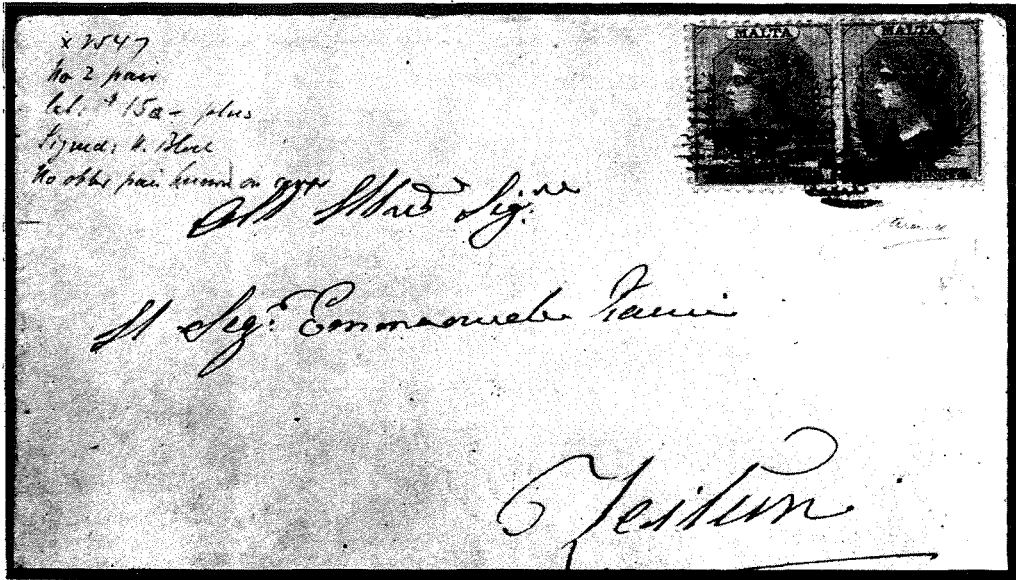 x 2547
No 2 pair
Cat. $ 150- plus
Signed: H. Bloch
No other pair known on cover
MALTA MALTA
All' Illmo Sigre
Il Sigr. Emmanuele
Zeitun